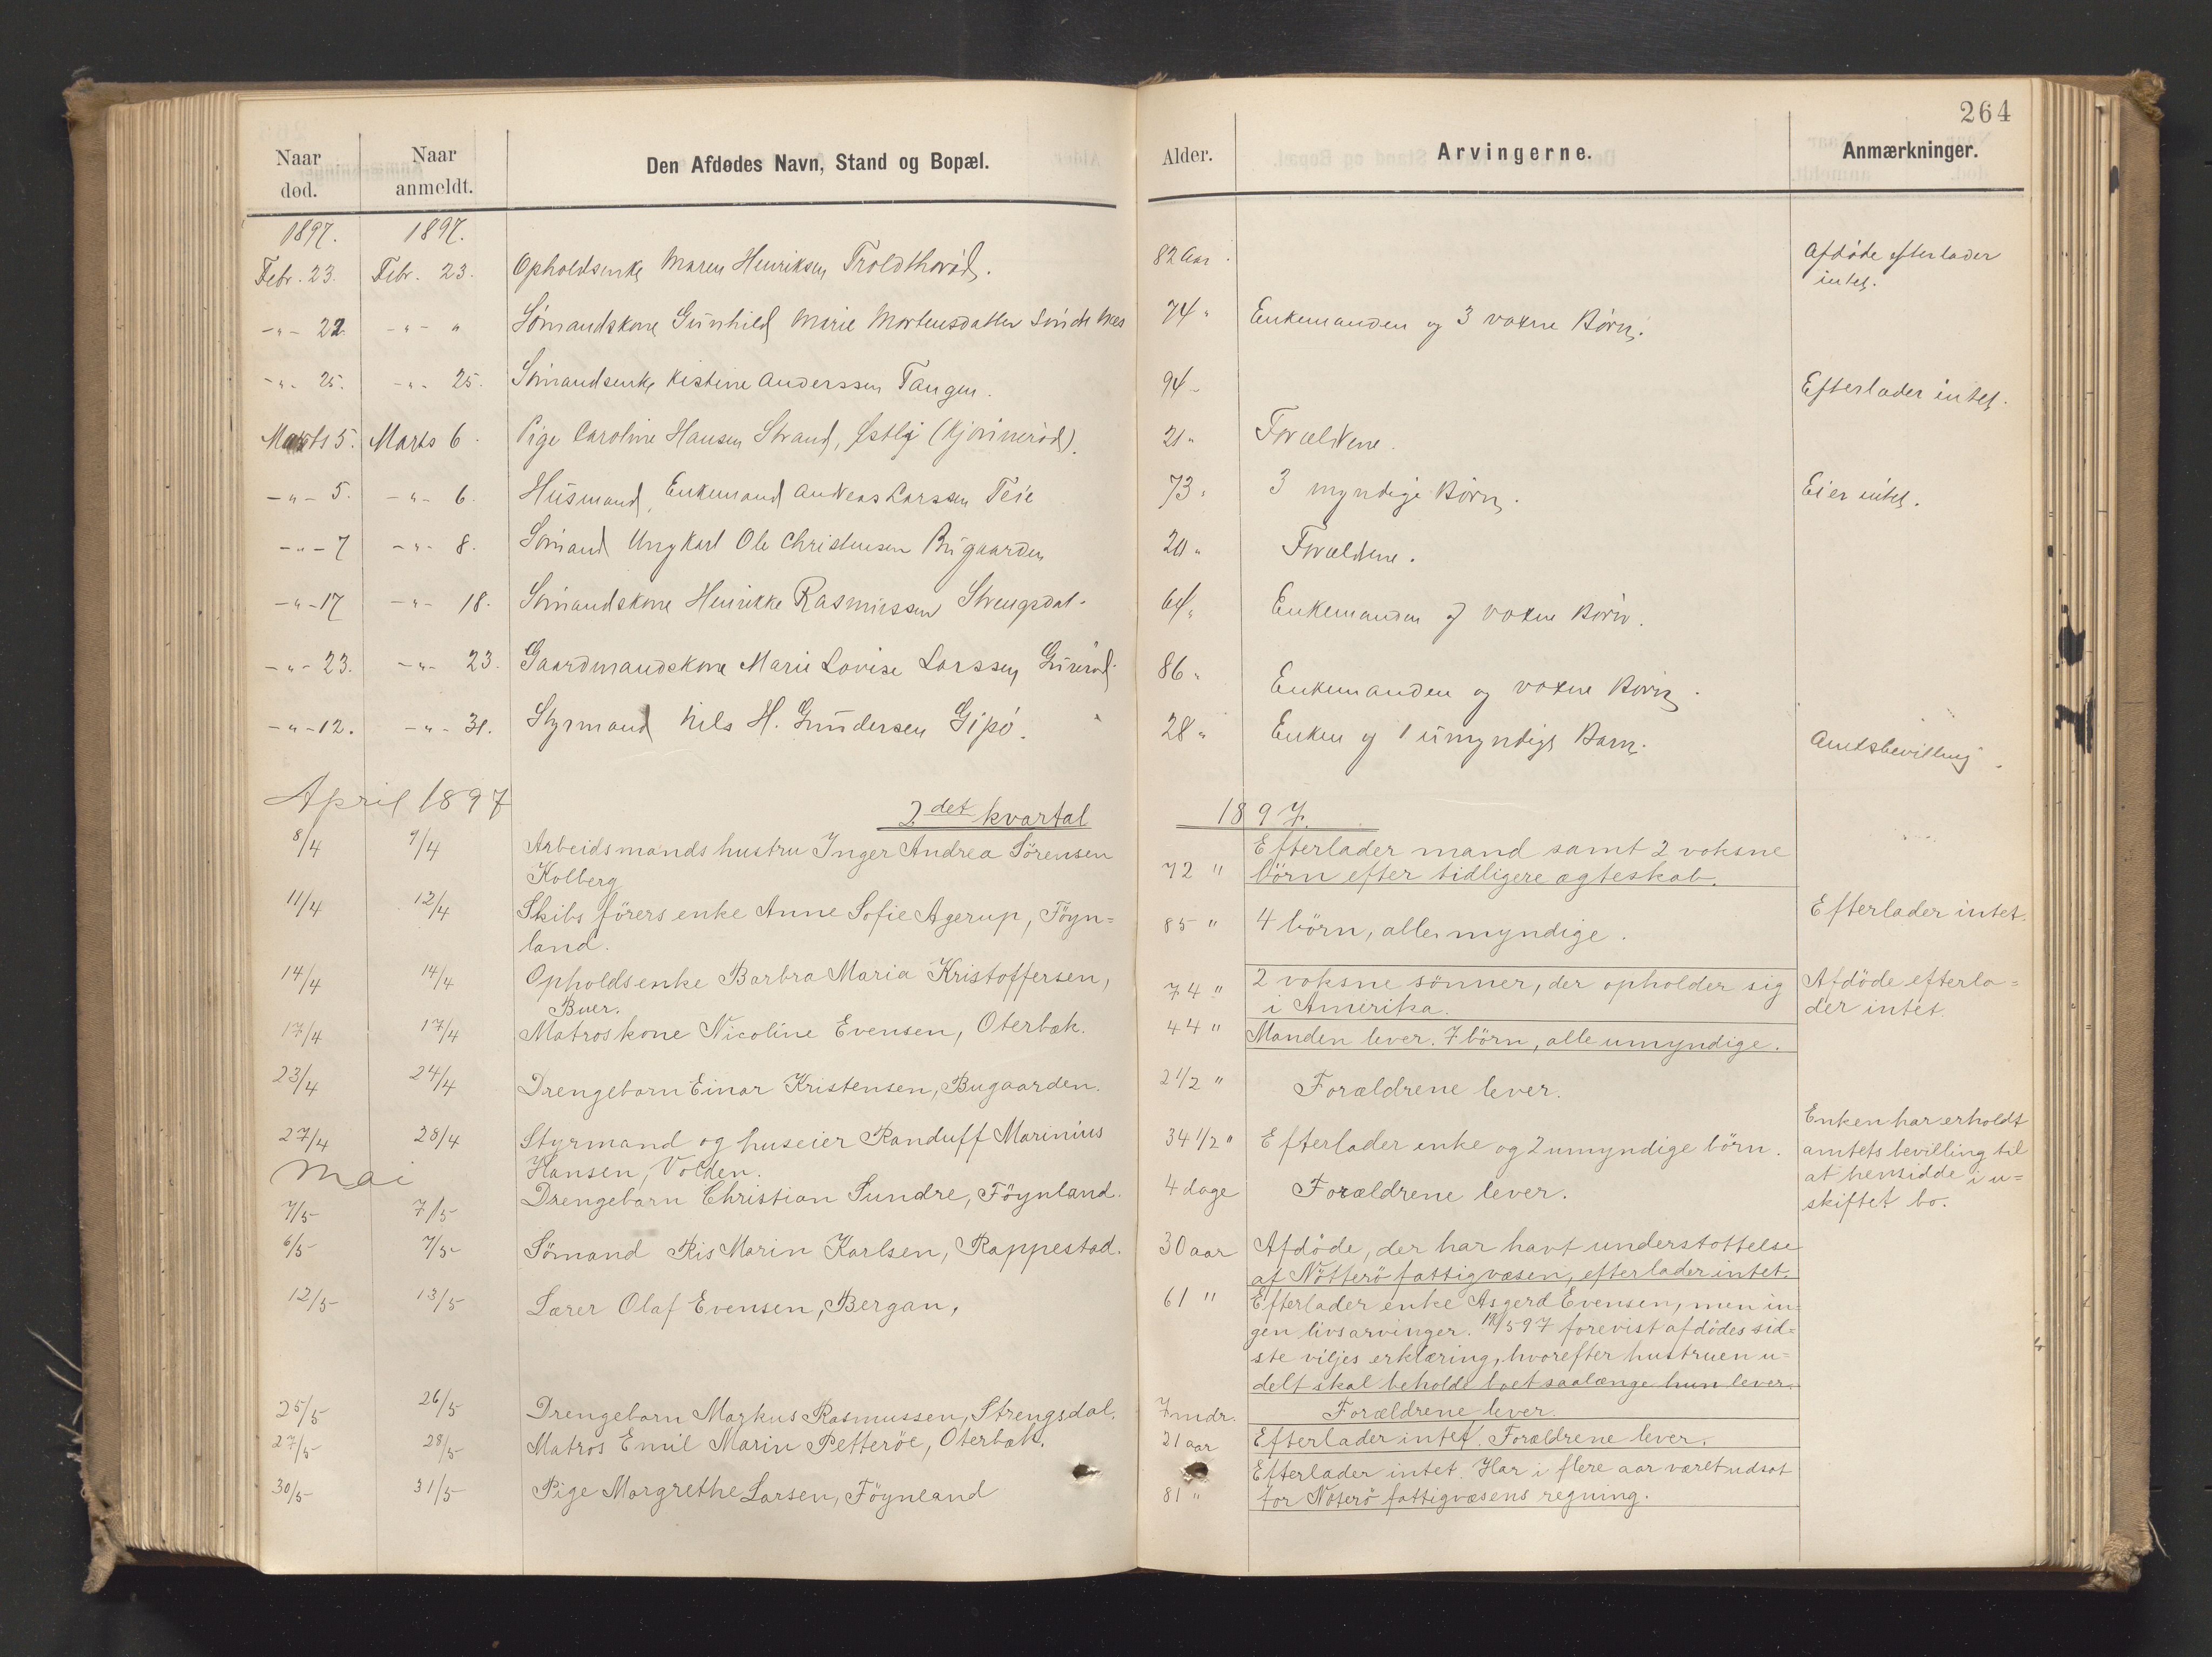 264
Naar død. Naar anmeldt. Den Afdødes Navn, Stand og Bopæl. Alder. Arvingerne. Anmærkninger.
1897. 1897.
Febr. 23. Febr. 23. Opholdsenke Maren Henriksen Troldthoröd. 82 Aar. Afdøde efterlader
intet.
-"- 22. -"- " Sömandskone Gunhild Marie Mortensdatter 74 " Enkemanden og 3 voxne Börn.
-"- 25. -"- 25. Sömandsenke Kistine Anderssen Tangen. 94 - Efterlader intet.
Marts 5. Marts 6. Pige Caroline Hansen Strand, Østbÿ 21 " Forældrene.
-"- 5. -"- 6. Husmand, Enkemand Andreas Larssen Teie 73 " 3 myndige Börn. Eier intet.
-"- 7 -"- 8. Sömand Ungkarl Ole Christensen Bugaarden 20 " Forældrene.
-"- 17 -"- 18. Sömandskone Henrikke Rasmussen Strengsdal. 64 " Enkemanden og voxne Börn.
-"- 23. -"- 23. Gaardmandskone Marie Lovise Larssen 86 " Enkemanden og voxne Börn.
-"- 12. -"- 31. Styrmand Nils H. Gundersen Gipö. 28 " Enken og 1 umyndigt Barn. Amtsbevilling.
April 1897 2det kvartal 1897.
8/4 9/4 Arbeidsmands hustru Inger Andrea Sörensen Efterlader mand samt 2 voksne
Kolberg 72 " börn efter tidligere ægteskab.
11/4 12/4 Skibsförers enke Anne Sofie Agerup, Föyn= 85 " 4 börn, alle myndige. Efterlader intet.
land.
14/4 14/4 Opholdsenke Barbra Maria Kristoffersen, 74 " 2 voksne sönner, der opholder sig Afdöde efterla=
Buer. i Amerika. der intet.
17/4 17/4 Matroskone Nicoline Evensen, Oterbæk. 44 " Manden lever. 7 börn, alle umyndige.
23/4 24/4 Drengebarn Einar Kristensen, Bugaarden. 2 1/2 " Forældrene lever.
27/4 28/4 Styrmand og huseier Randuff Marinius 34 1/2 " Efterlader enke og 2 umyndige börn. Enken har erholdt
amtets bevilling til
at hensidde i u=
skiftet bo.
Hansen, Volden.
Mai
7/5 7/5 Drengebarn Christian Sundre, Föynland. 4 dage Forældrene lever.
6/5 7/5 Sömand Ris Marin Karlsen, Rappestad. 30 aar Afdöde, der har havt understöttelse
af Nötterö fattigvæsen, efterlader intet.
12/5 13/5 Lærer Olaf Evensen, Bergan, 61 " Efterlader enke Asgerd Evensen, men in=
gen livsarvinger. forevist afdödes sid=
ste viljes erklæring, hvorefter hustruen u=
delt skal beholde boet saalænge hun lever.
25/5 26/5 Drengebarn Markus Rasmussen, Strengsdal. 7 mdr. Forældrene lever.
27/5 28/5 Matros Emil Marin Petteröe, Oterbæk. 21 aar Efterlader intet. Forældrene lever.
30/5 31/5 Pige Margrethe Larsen, Föynland 81 " Efterlader intet. Har i flere aar været udsat
for Nøterö fattigvæsens regning.